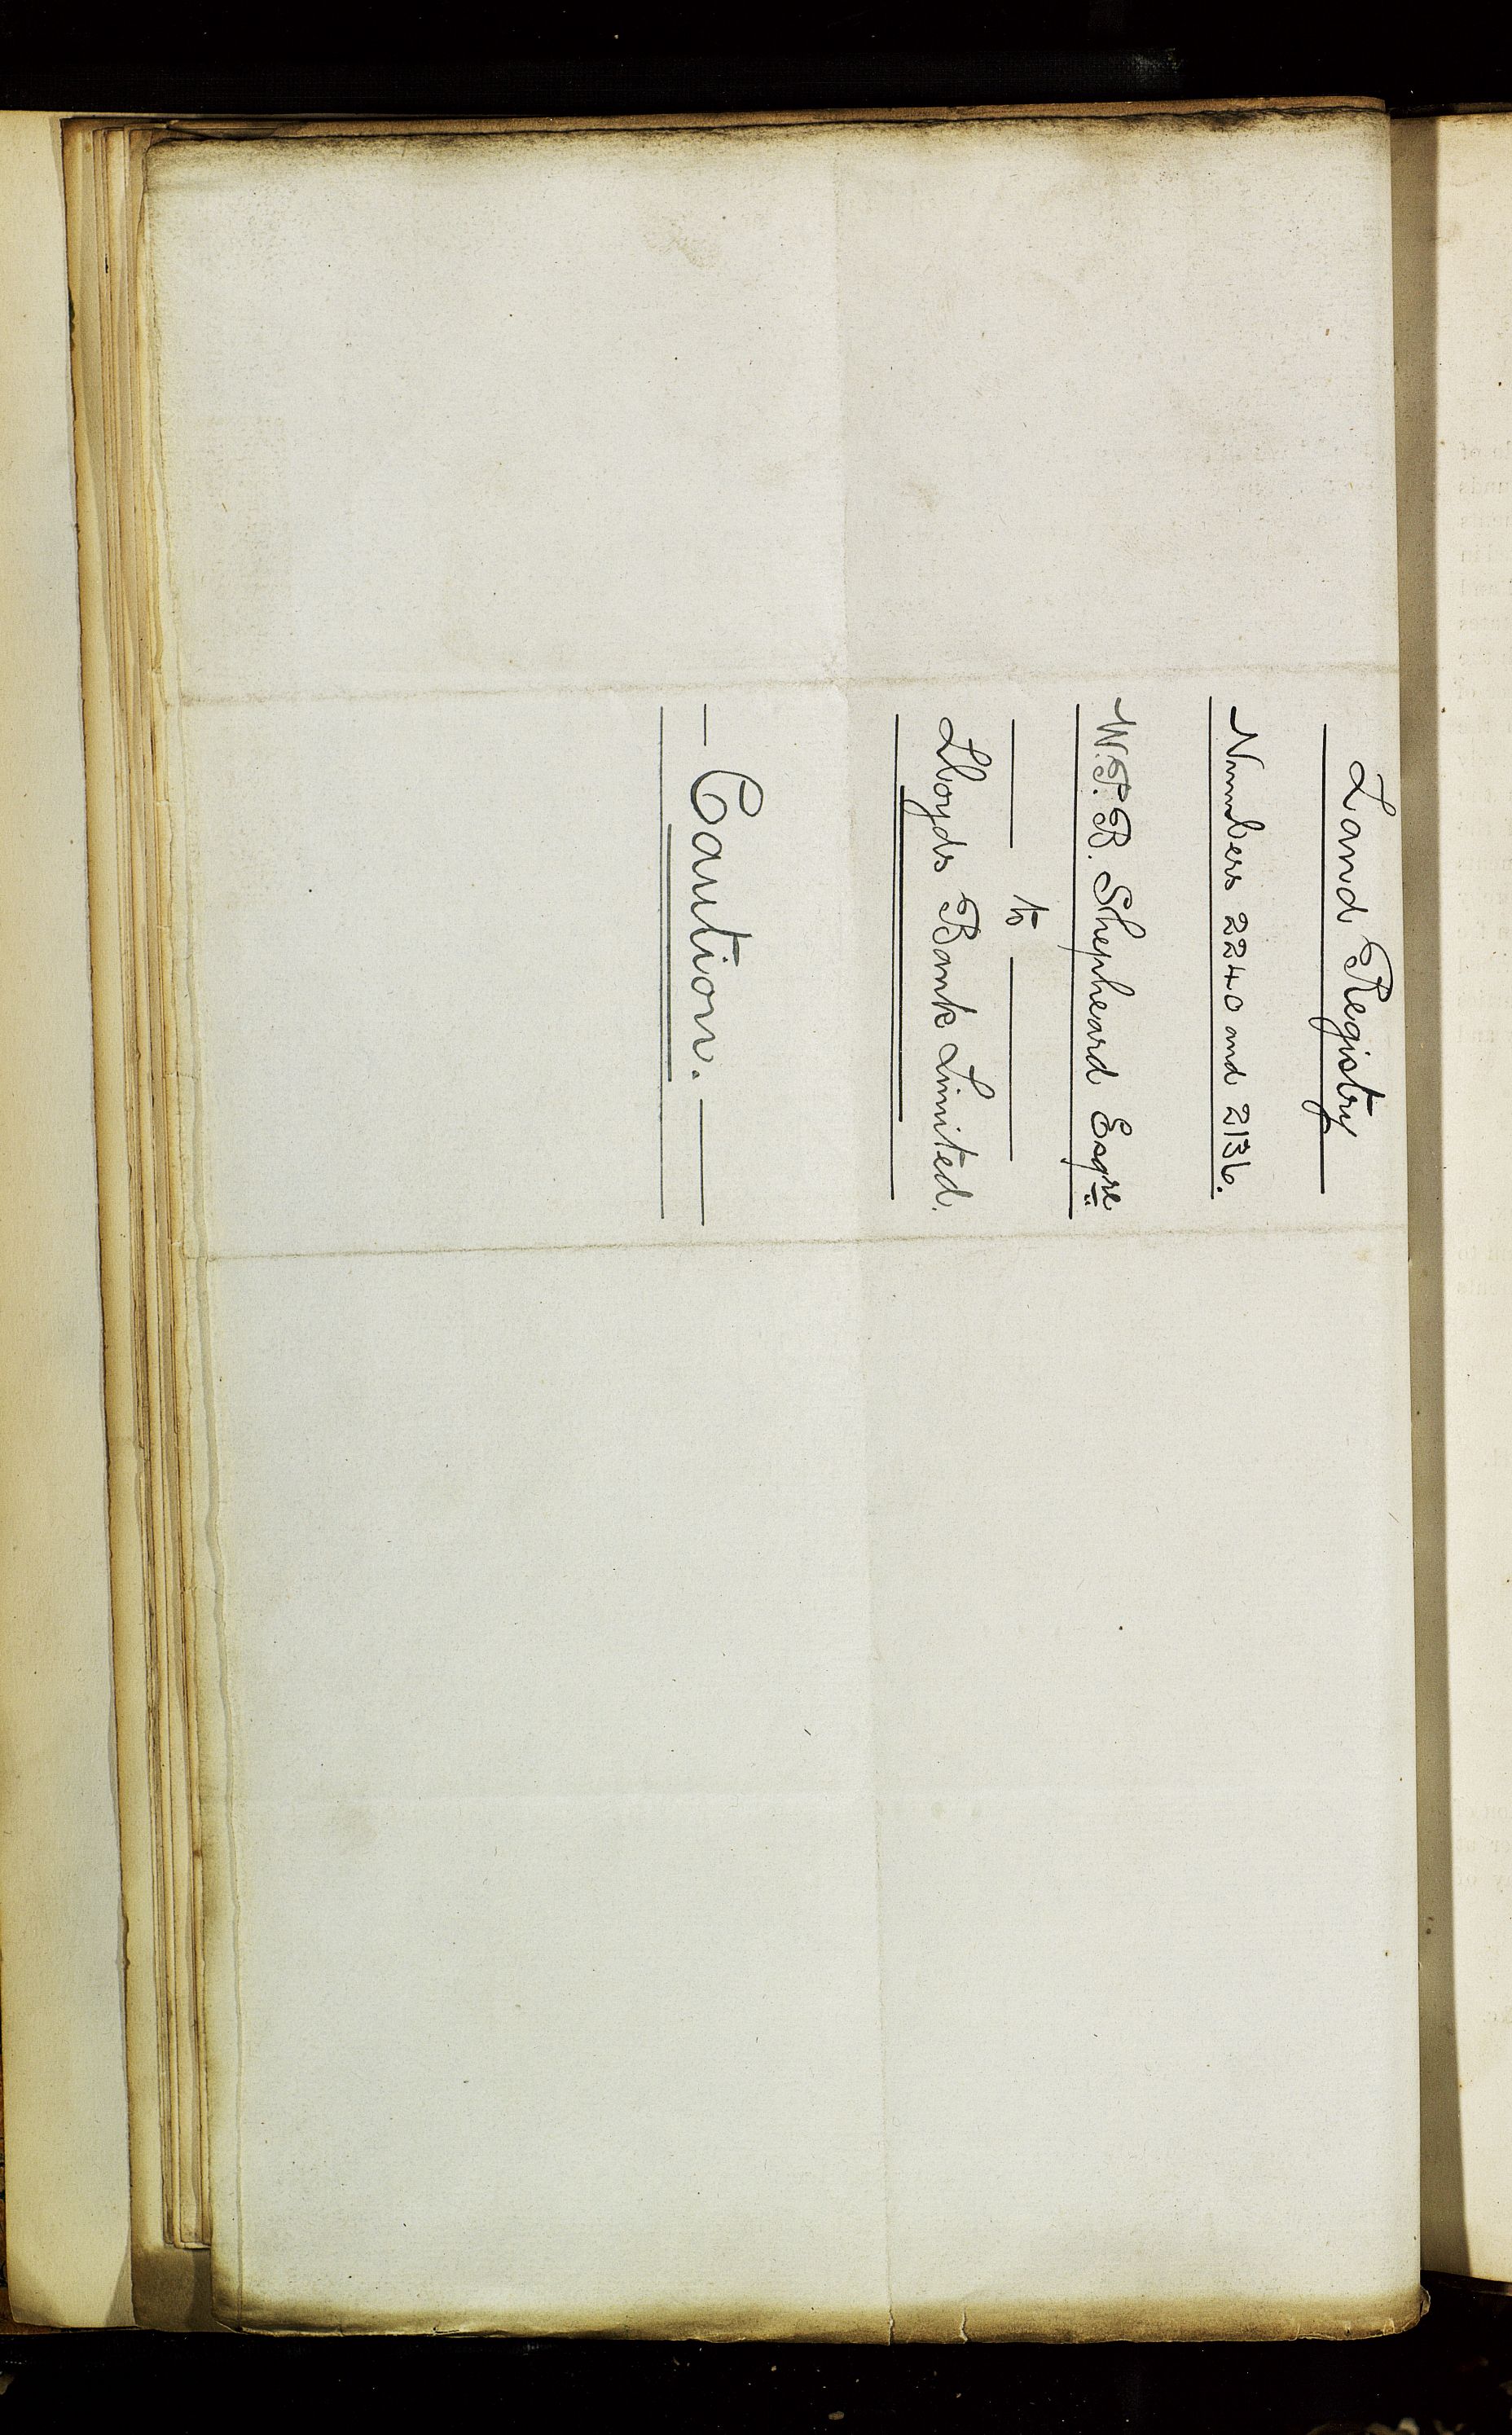 Land Registry
Numbers 2240 and 2136.
W. P. B. Shepheard Esqre
to
Lloyds Bank Limited.
— Caution. —